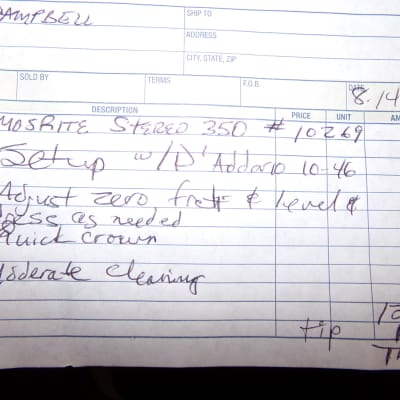 CAMPBELL
SHIP TO
ADDRESS
CITY, STATE, ZIP
SOLD BY
TERMS
F.O.B.
DATE
8.14
DESCRIPTION
PRICE
UNIT
AM
MOSRITE STEREO 350 # 10269
Setup w/ D'Addario 10-46
Adjust zero fret & level &
dress as needed
Quick crown
Moderate cleaning
tip